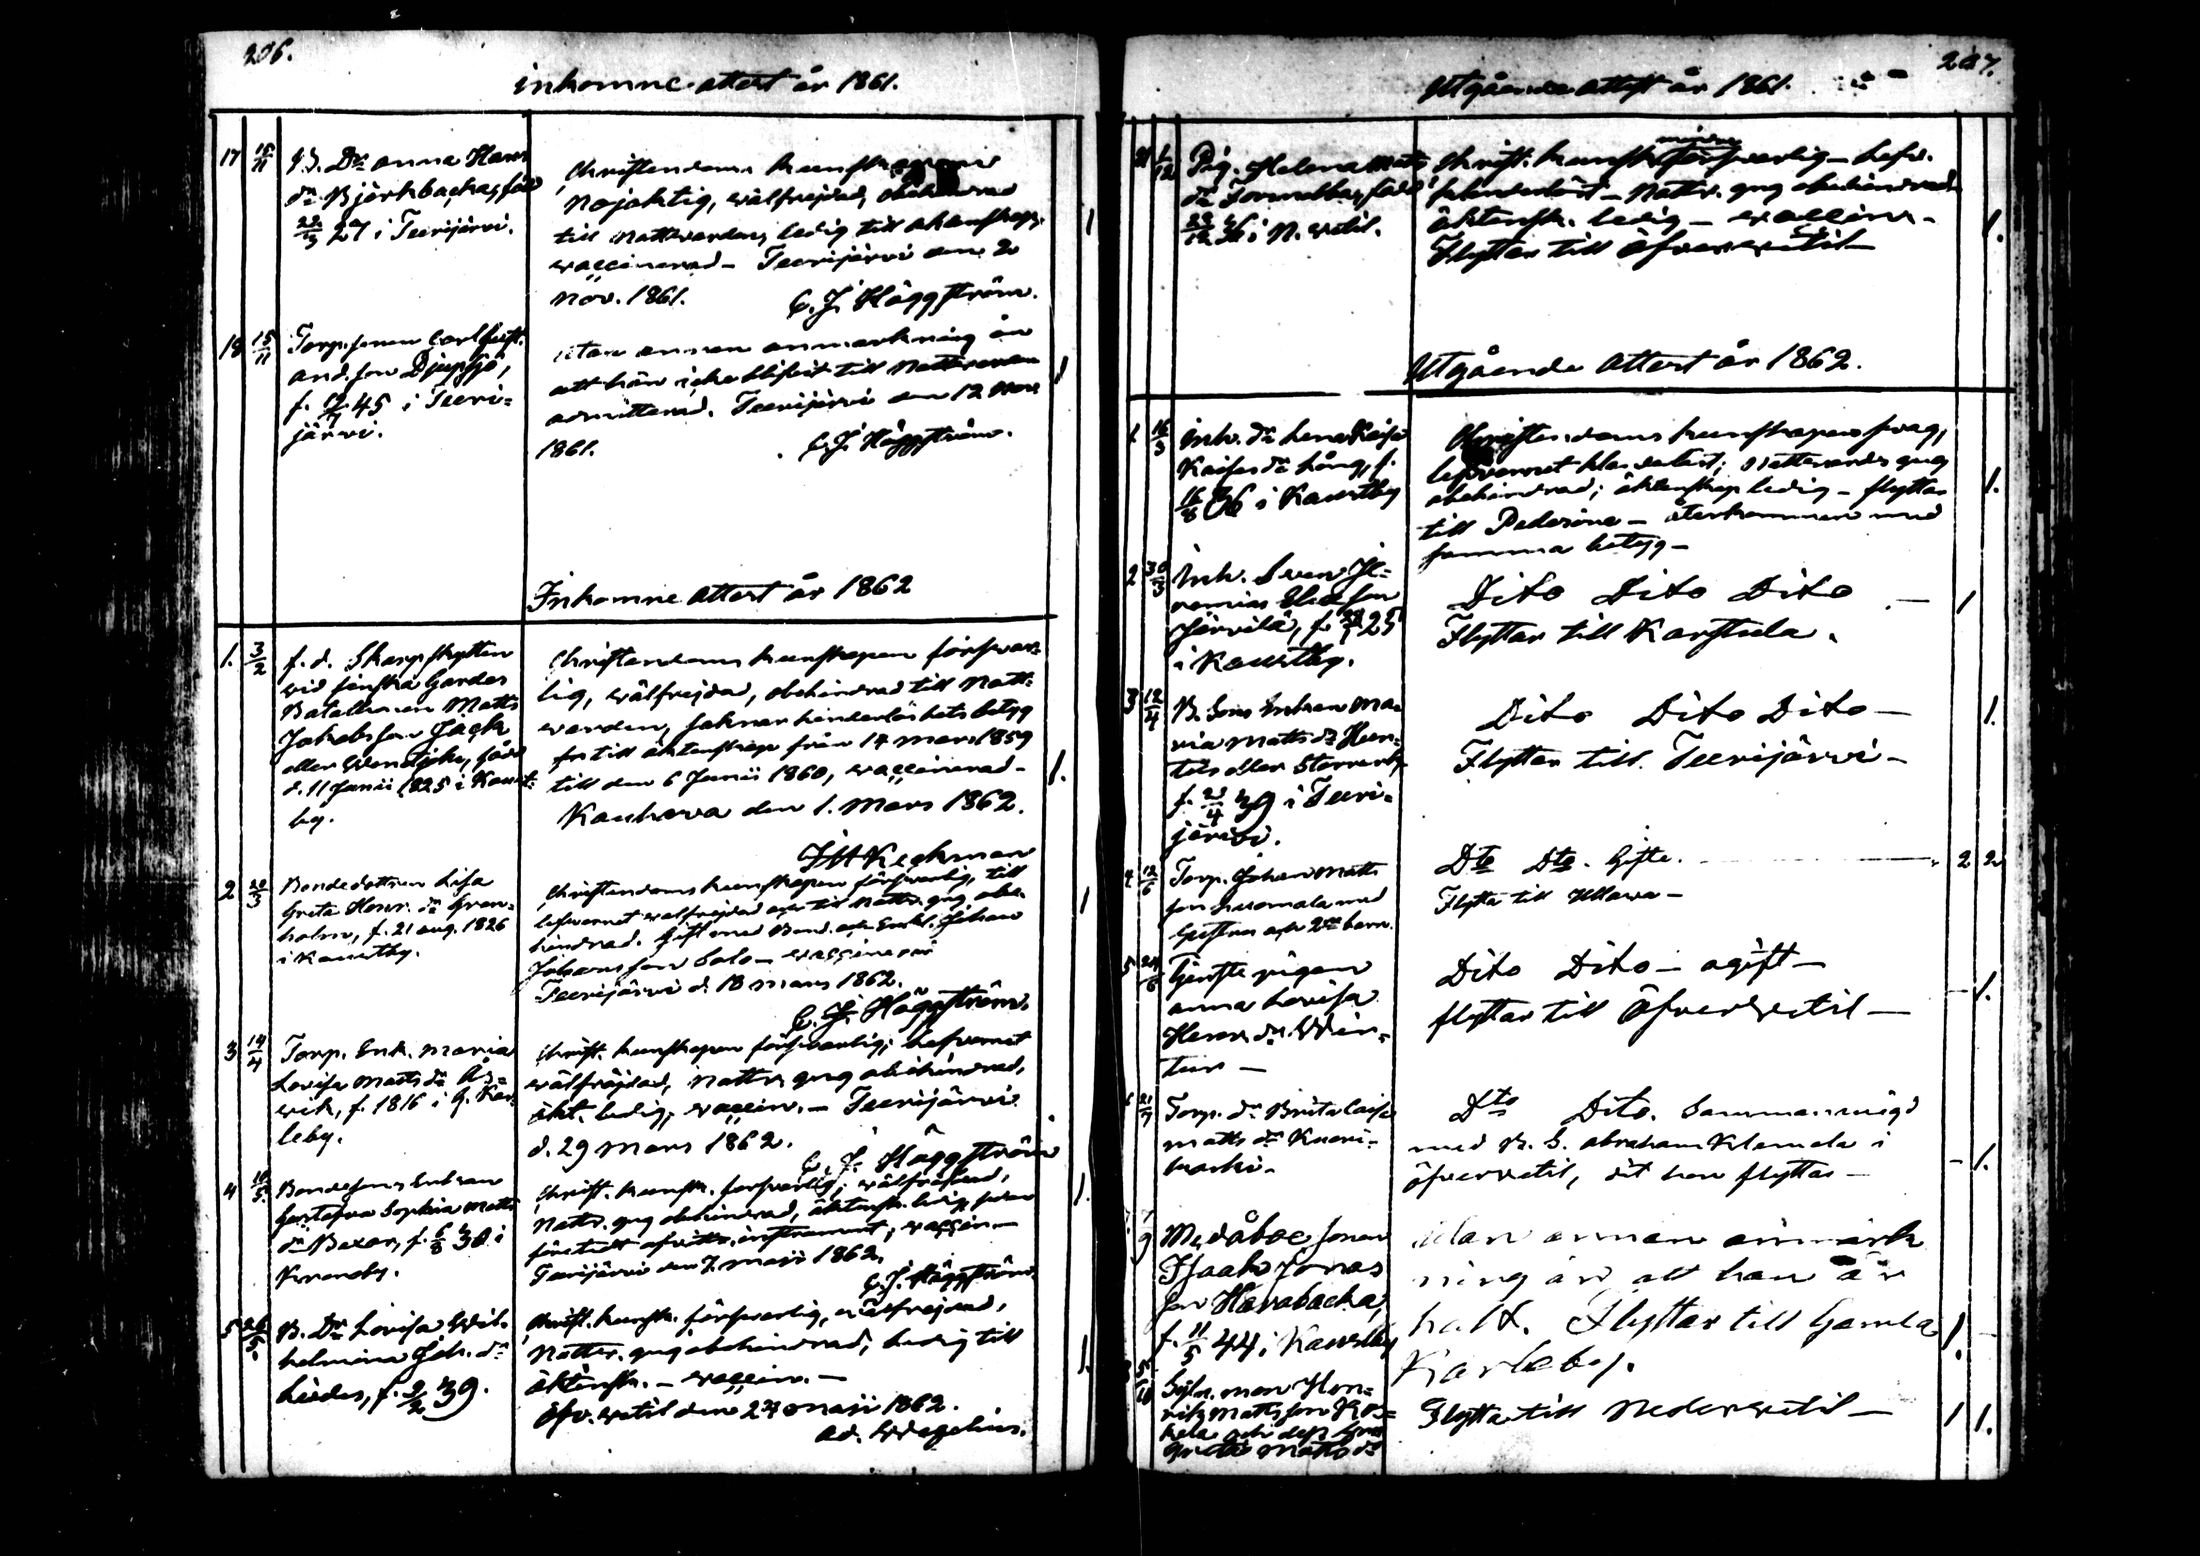 206.
Inkomne attest år 1861.
17 15/11 B. Dr Anna Hans
dr Björkbacka, född
22/3 27 i Teerijärvi.
Christendoms kunskapen
Nöjaktig, wälfrejdad, obehindrad
till Nattvarden, ledig till äktenskap,
waccinerad – Teerijärvi den 2
Nov. 1861. C. J. Häggström.
1
18 15/11 Torp. sonen Carl Gust.
And. son Djupsjö,
f. 45 i Teeri=
järvi.
utan annan anmärkning än
att han icke blifvit till Nattvarden
admitterad. Teerijärvi den 12 Nov.
1861. C. J. Häggström.
1
Inkomne attest år 1862
1. 3/2 f. d. Skarpskytten
wid finska Gardes
Bataljonen Matts
Jakobsson Jack
eller , född
d. 11 Junii 1825 i Kaust=
by.
Christendoms kunskapen förswar=
lig, wälfrejdad, obehindrad till Natt=
warden, saknar hinderlöshets betyg
till äktenskap från 14 Mars 1859
till den 6 Junii 1860, waccinerad –
Kauhava den 1. Mars 1862.
1.
2 20/3 Bondedottren Lisa
Greta Henr. dr Gran=
holm, f. 21 aug. 1826
i Kaustby.
Christendomskunskapen förswarlig, till
lefvernet wälfrejdad och till Nattv. gng obe=
hindrad. Gift med Bond. och Enkl. Johan
Johansson Salo – waccinerad
Teerijärvi d. 18 mars 1862.
C. J. Häggström.
1
3 14/4 Torp. Enk. Maria
Lovisa Matts dr Ås=
wik, f. 1816 i G. Kar=
leby.
Christ. kunskapen förswarlig; lefvernet
wälfräjdad, Nattv. gng obehindrad,
äkt. ledig, waccin. – Teerijärvi
d. 29 Mars 1862.
C. J. Häggström
4 10/5 Bondesons Enkan
Gustafva Sophia Matts
dr Bexar, f. 6/8 30 i
Kronoby.
Christ. kunsk. förswarlig; wälfräjdad,
Nattv. gng obehindrad, äktensk. ledig, sedan
företedt afvittr. instrument, waccin. –
Teerijärvi den 7. Maji 1862.
C. J. Häggström
1.
5 26/5 B. Dr Lovisa Wil=
helmina Joh. dr
, f. 2/2 39.
Christ. kunsk. förswarlig, wälfrejdad,
Nattv. gng obehindrad, ledig till
äktensk. – waccin. –
Öfv. wetil den 24 Maji 1862.
Ad. Wegelius.
1.
207.
Utgående attest år 1861.
21 1/12 Pig. Helena Matts
dr , född
i N. wetil.
mindre
Christ. kunsk. förswarlig – Lefv.
– Nattv. gng obehindrad
äktensk. ledig – waccin. –
Flyttar till Öfverwetil –
1.
Utgående Attest år 1862.
1. 16/3 Inh. dr Lena Kaisa
Kaisas dr Lång, f.
16/8 36 i Kaustby
Christendoms kunskapen swag,
lefvernet klanderlöst; Nattvards gng
obehindrad; äktenskap ledig – flyttar
till Pedersöre – återkommen med
samma betyg –
1.
2 30/3 Inh. Sven Je=
remias son
Järvilä, f. 25
i Kaustby.
Dito Dito Dito –
Flyttar till Karstula.
1
3 12/4 B. Sons Enkan Ma=
ria Matts dr
eller Storrerby
f. 39 i Teeri=
järvi.
Dito Dito Dito –
Flyttar till Teerijärvi –
1.
4 12/6 Torp. Johan Matts
son med
hustru och 2ne barn.
Dto Dto. Gifte. 2 2
Flytta till Ullawa –
5 24/6 Tjenste pigan
Anna Lovisa
Henr. dr Win=
ter –
Dito Dito – ogift –
flyttar till Öfverwetil –
1.
6 21/7 Torp. dr Brita Caisa
Matts dr =
koski –
Dto Dito. Sammanwigd
med B. S. Abraham Klemola i
Öfverwetil, dit hon flyttar –
1.
7. 7/9 Medåboe Sonen
Isaak Jonas
son Harabacka,
f. 11/5 44 i Kaustby
utan annan anmärk
ning än att han är
halt. Flyttar till Gamla
Karleby.
1.
8 5/10 man Hen=
rik Matts son Kos=
kela och dess hust
Greta Matts dr
Flytta till Nederwetil –
1 1.